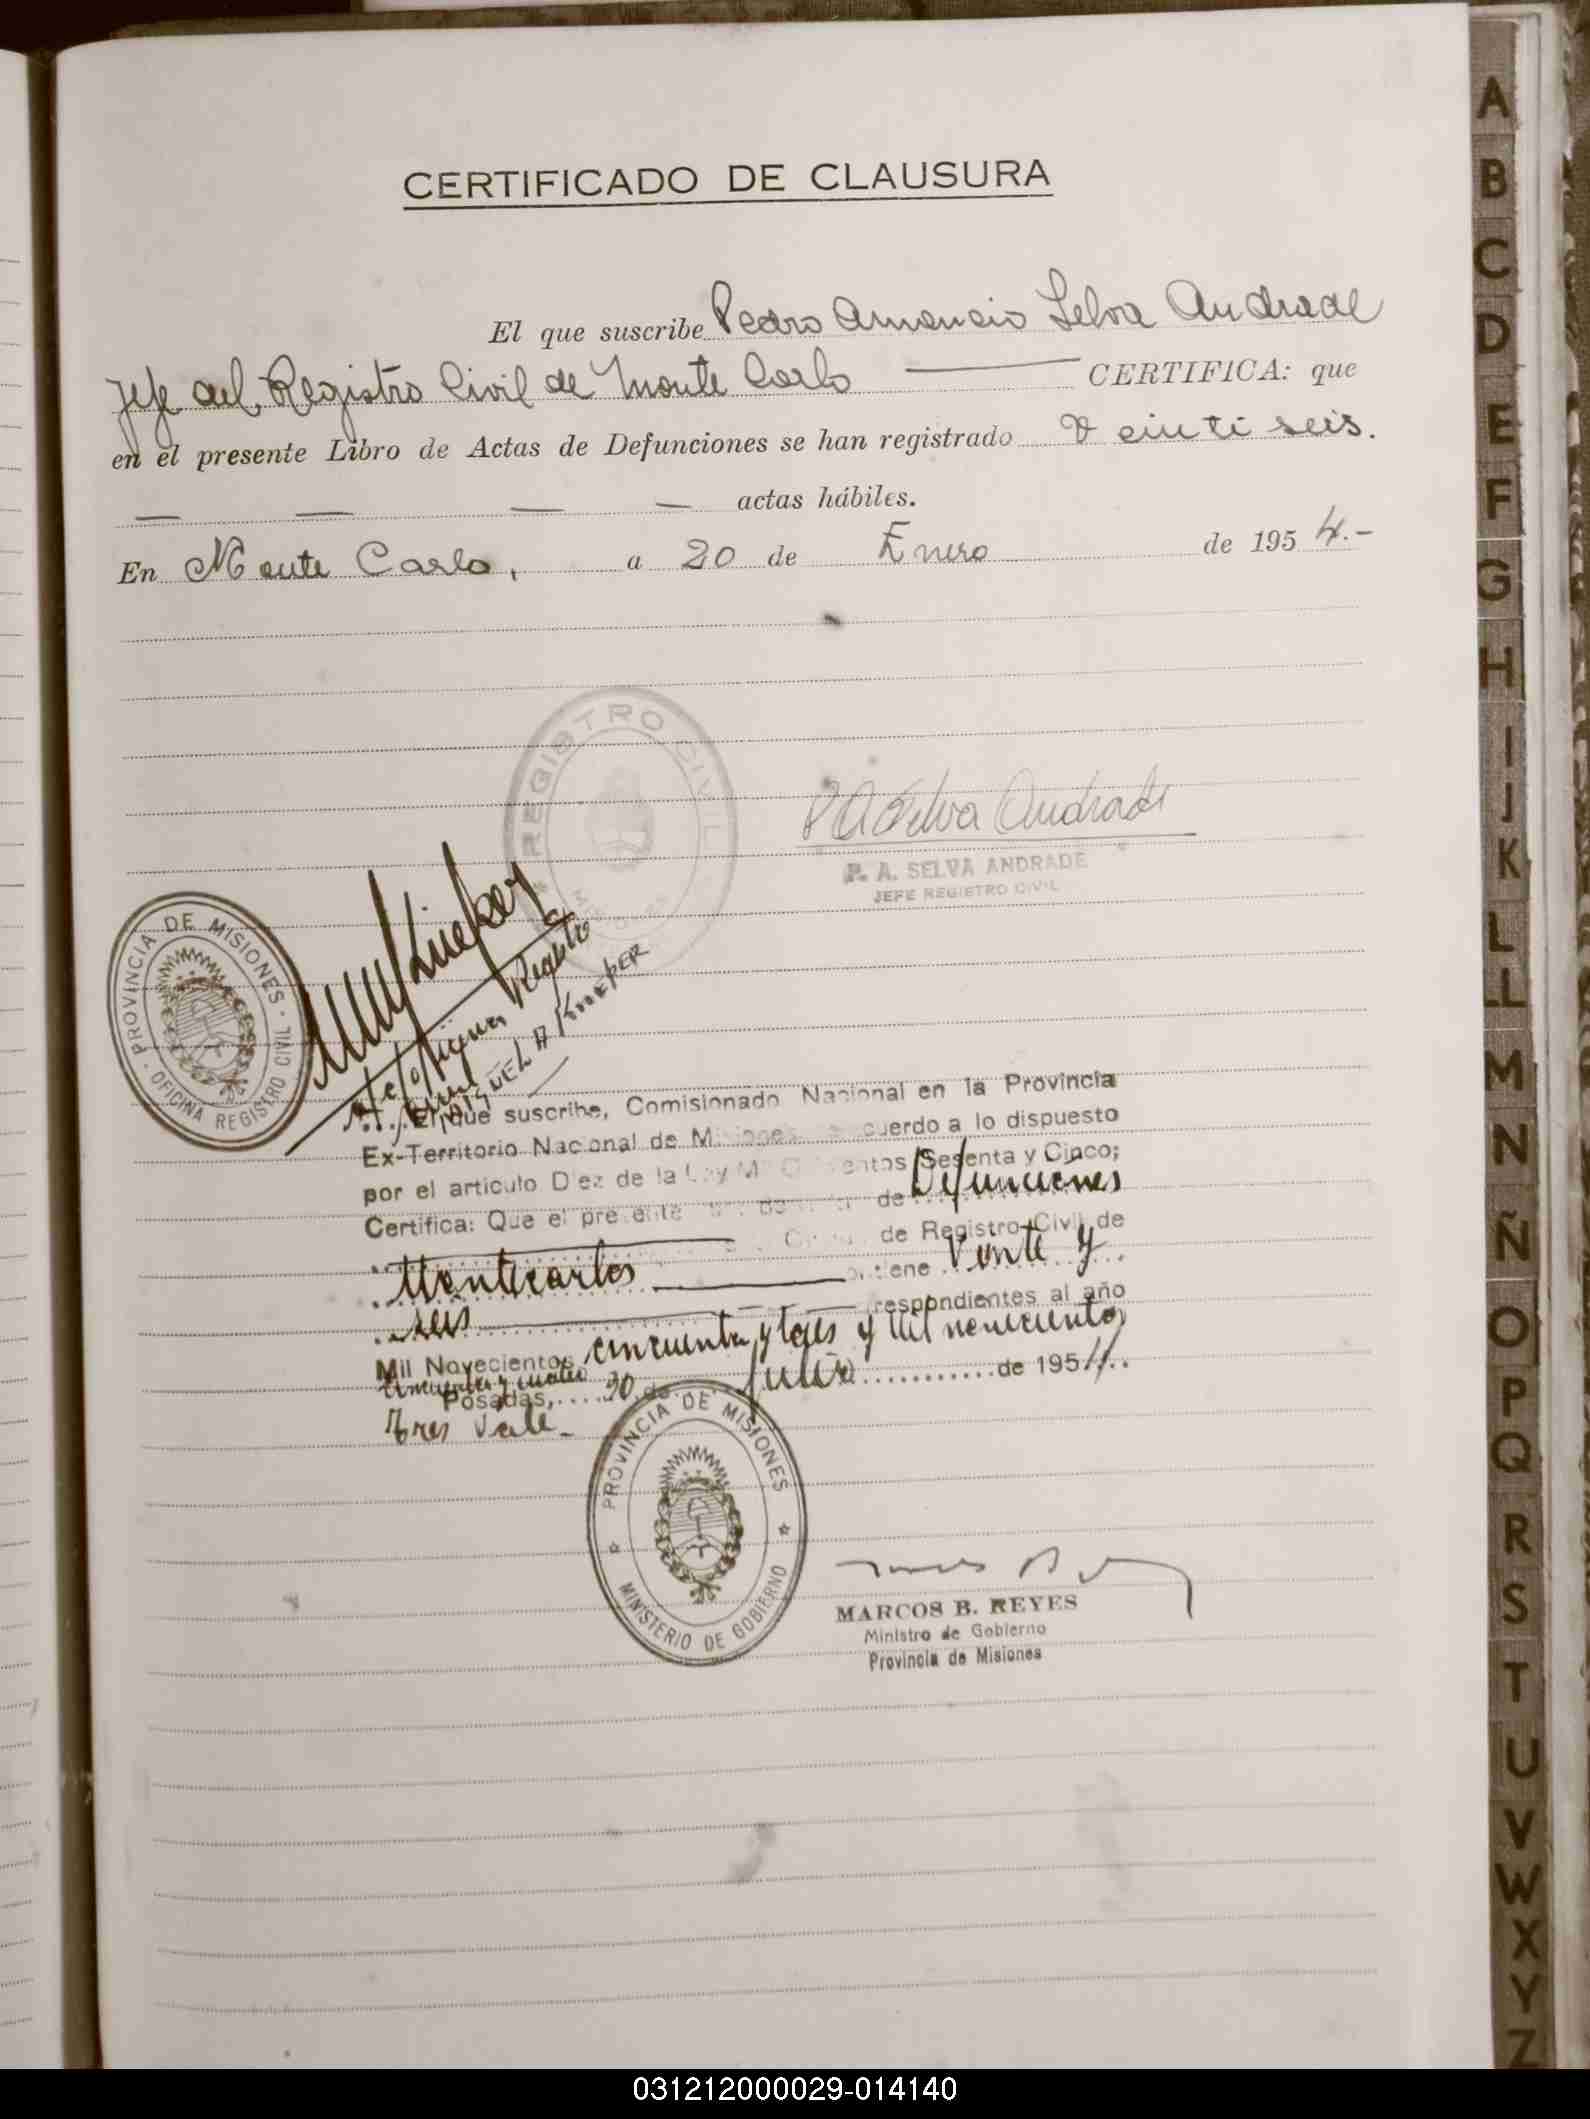 CERTIFICADO DE CLAUSURA
El que suscribe Pedro Amancio Selva Andrade
Jefe del Registro Civil de Monte Carlo CERTIFICA: que
en el presente Libro de Actas de Defunciones se han registrado Veinti seis.
— — — — actas hábiles.
En Monte Carlo, a 20 de Enero de 1954.-
REGISTRO CIVIL
MISIONES
P A Selva Andrade
P. A. SELVA ANDRADE
JEFE REGISTRO CIVIL
PROVINCIA DE MISIONES
OFICINA REGISTRO CIVIL
Registro
MIGUEL A KNEPER
El que suscribe, Comisionado Nacional en la Provincia
Ex-Territorio Nacional de Misiones cuerdo a lo dispuesto
por el artículo Diez de la Ley entos Sesenta y Cinco;
Certifica: Que el presente de Defunciones
de Registro Civil de
Montecarlos tiene Veinte y
seis respondientes al año
Mil Novecientos cincuenta y tres y mil novecientos
cincuenta y cuatro
Posadas, 20 de Julio de 1954.
Tres Vale -
PROVINCIA DE MISIONES
MINISTERIO DE GOBIERNO
MARCOS B. REYES
Ministro de Gobierno
Provincia de Misiones
A
B
C
D
E
F
G
H
I
J
K
L
LL
M
N
Ñ
O
P
Q
R
S
T
U
V
W
X
Y
Z
031212000029-014140